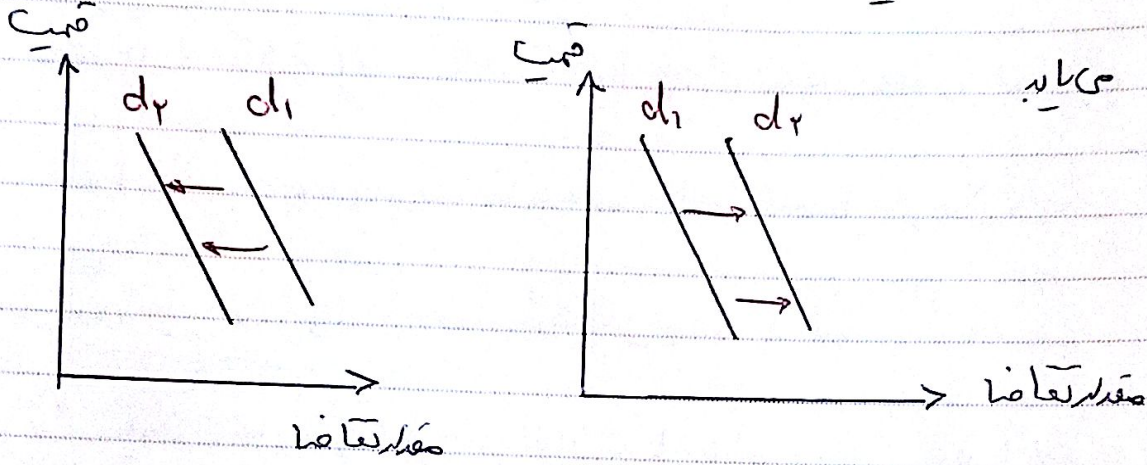 می‌یابد.
قیمت
d۱ d۲
مقدار تقاضا
قیمت
d۲ d۱
مقدار تقاضا